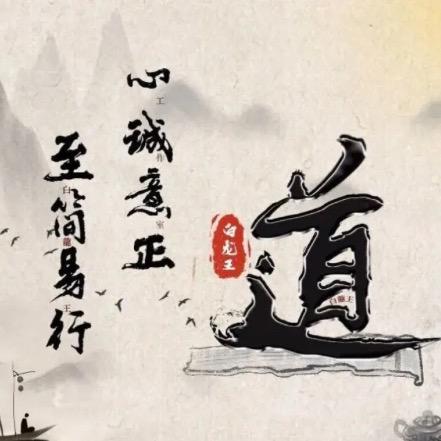 心誠意正
至简易行
工作室
白龍王
白龙王
道
白龍王